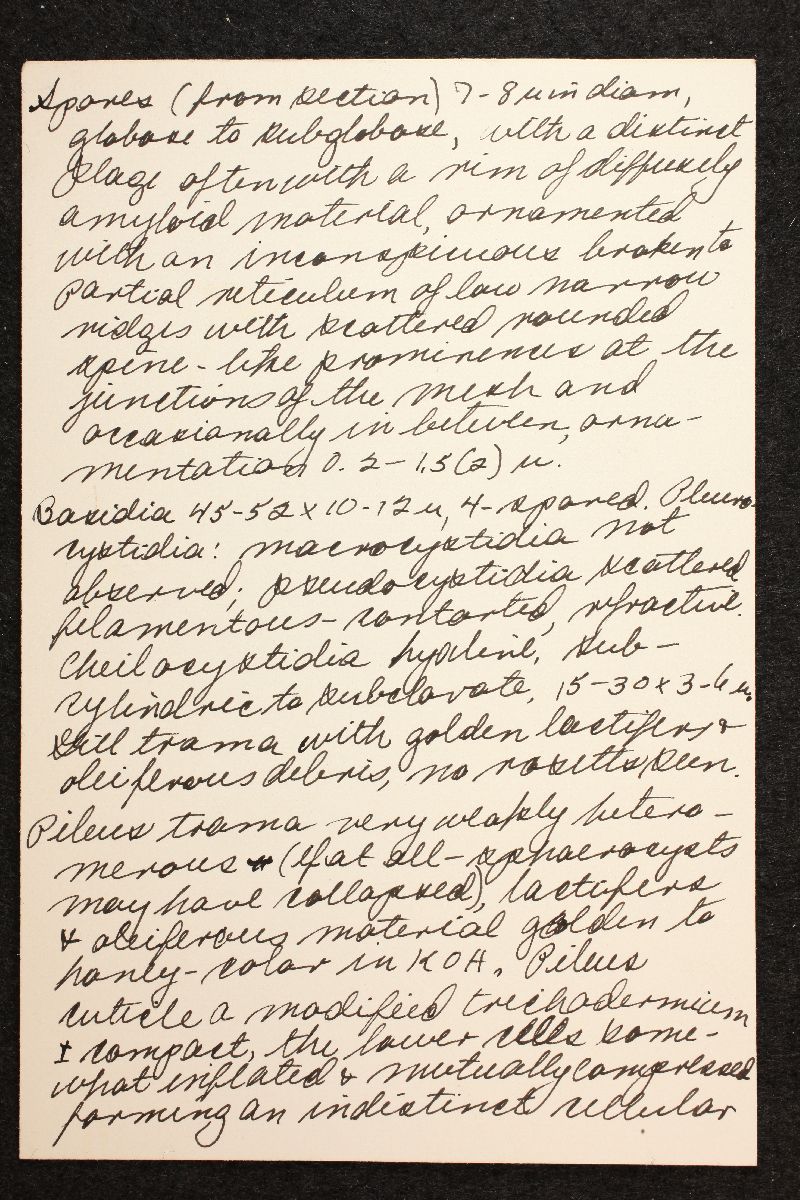 Spores (from section) 7-8 u in diam,
globose to subglobose, with a distinct
plage often with a rim of diffusely
amyloid material, ornamented
with an inconspicuous broken to
partial reticulum of low narrow
ridges with scattered rounded
spine-like prominences at the
junctions of the mesh and
occasionally in between, orna-
mentation 0.2-1.5(2) u.
Basidia 45-52 x 10-12 u, 4-spored. Pleuro-
cystidia: macrocystidia not
observed; pseudocystidia scattered
filamentous-contorted, refractive.
Cheilocystidia hyaline, sub-
cylindric to subclavate, 15-30 x 3-6 u.
Gill trama with golden lactifers &
oleiferous debris, no rosetts seen.
Pileus trama very weakly hetero-
merous (if at all - sphaerocysts
may have collapsed), lactifers
& oleiferous material golden to
honey-color in KOH. Pileus
cuticle a modified trichodermium
± compact, the lower cells some-
what inflated & mutually compressed
forming an indistinct cellular